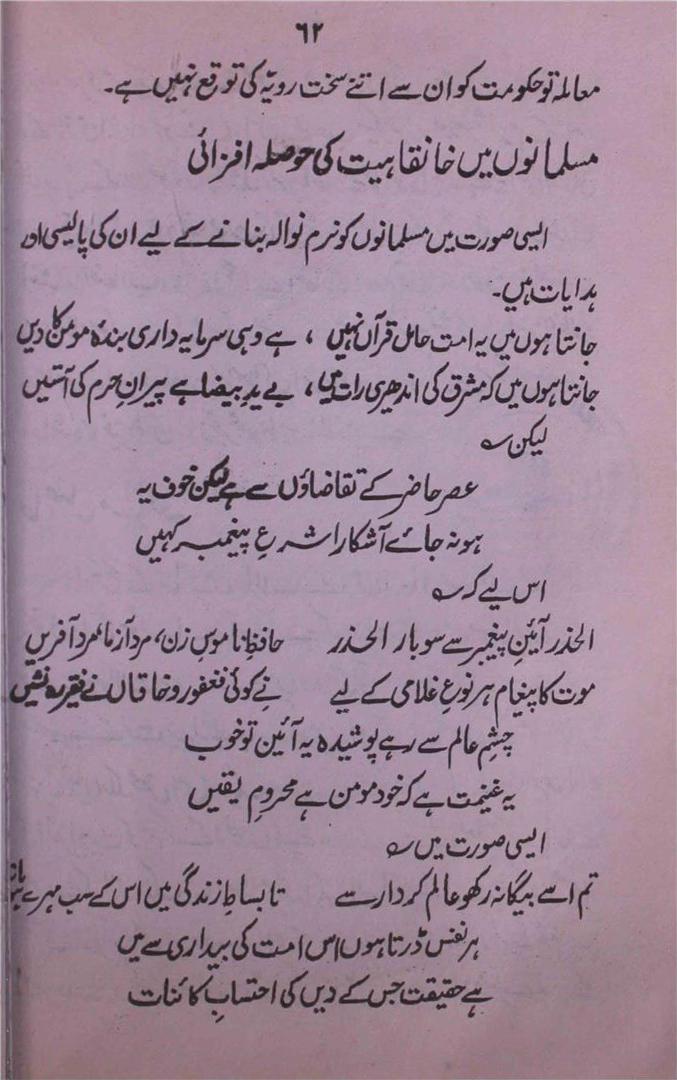 ٦٢
معاملہ تو حکومت کو ان سے اتنے سخت رویّہ کی توقع نہیں ہے۔
مسلمانوں میں خانقاہیت کی حوصلہ افزائی
ایسی صورت میں مسلمانوں کو نرم نوالہ بنانے کے لیے ان کی پالیسی اور
ہدایات ہیں۔
جانتا ہوں میں یہ امت حامل قرآں نہیں ، ہے وہی سرمایہ داری بندۂ مومن کا دیں
جانتا ہوں میں کہ مشرق کی اندھیری رات میں ، بے یدِ بیضا ہے پیرانِ حرم کی آستیں
لیکن ؎
عصر حاضر کے تقاضاؤں سے ہے لیکن خوف یہ
ہو نہ جائے آشکارا شرعِ پیغمبر کہیں
اس لیے کہ ؎
الحذر آئینِ پیغمبر سے سو بار الحذر حافظِ ناموسِ زن، مرد آزما، مرد آفریں
موت کا پیغام ہر نوعِ غلامی کے لیے نے کوئی فغفور و خاقاں نے فقیر رہ نشیں
چشمِ عالم سے رہے پوشیدہ یہ آئین تو خوب
یہ غنیمت ہے کہ خود مومن ہے محرومِ یقیں
ایسی صورت میں ؎
تم اسے بیگانہ رکھو عالم کردار سے تا بساطِ زندگی میں اس کے سب مہرے
ہر نفس ڈرتا ہوں اس امت کی بیداری سے میں
ہے حقیقت جس کے دیں کی احتسابِ کائنات